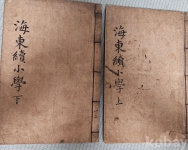 海東續小學 下
海東續小學 上
kobay